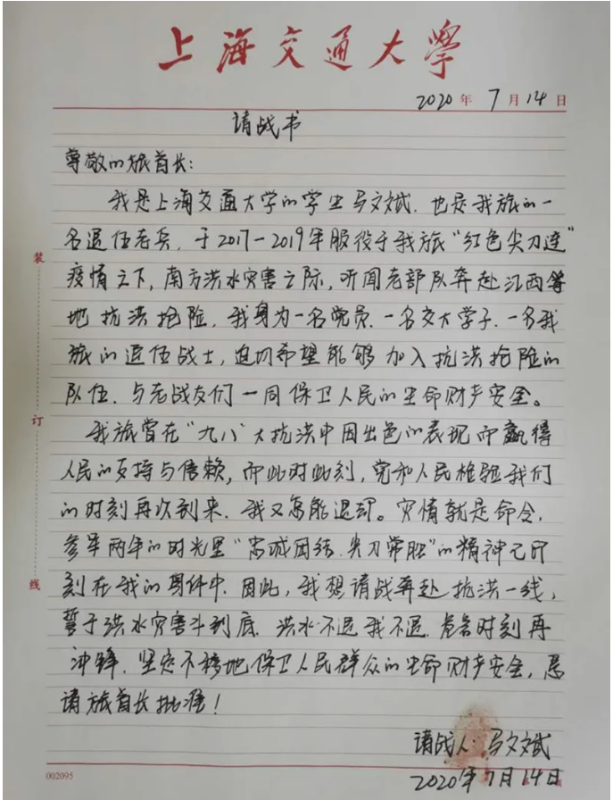 上海交通大學
2020年7月14日
请战书
尊敬的旅首长：
我是上海交通大学的学生马文斌，也是我旅的一
名退伍老兵，于2017-2019年服役于我旅“红色尖刀连”
疫情之下，南方洪水灾害之际，听闻老部队奔赴江西等
地抗洪抢险，我身为一名党员、一名交大学子、一名我
旅的退伍战士，迫切希望能够加入抗洪抢险的
队伍，与老战友们一同保卫人民的生命财产安全。
我旅曾在“九八”大抗洪中因出色的表现而赢得
人民的支持与信赖，而此时此刻，党和人民检验我们
的时刻再次到来，我又怎能退却。灾情就是命令，
参军两年的时光里“忠诚团结，尖刀常胜”的精神已印
刻在我的身体中，因此，我想请战再赴抗洪一线，
誓于洪水灾害斗到底，洪水不退我不退，危急时刻再
冲锋，坚定不移地保卫人民群众的生命财产安全，恳
请旅首长批准！
请战人：马文斌
2020年7月14日
装
订
线
002095